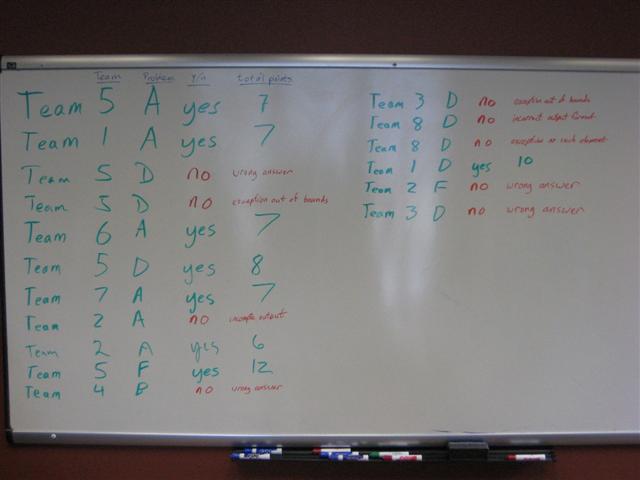 Team Problem y/n total points
Team 5 A yes 7
Team 1 A yes 7
Team 5 D no wrong answer
Team 5 D no exception out of bounds
Team 6 A yes 7
Team 5 D yes 8
Team 7 A yes 7
Team 2 A no output
Team 2 A yes 6
Team 5 F yes 12
Team 4 B no wrong answer
Team 3 D no exception out of bounds
Team 8 D no incorrect output format
Team 8 D no exception no such element
Team 1 D yes 10
Team 2 F no wrong answer
Team 3 D no wrong answer